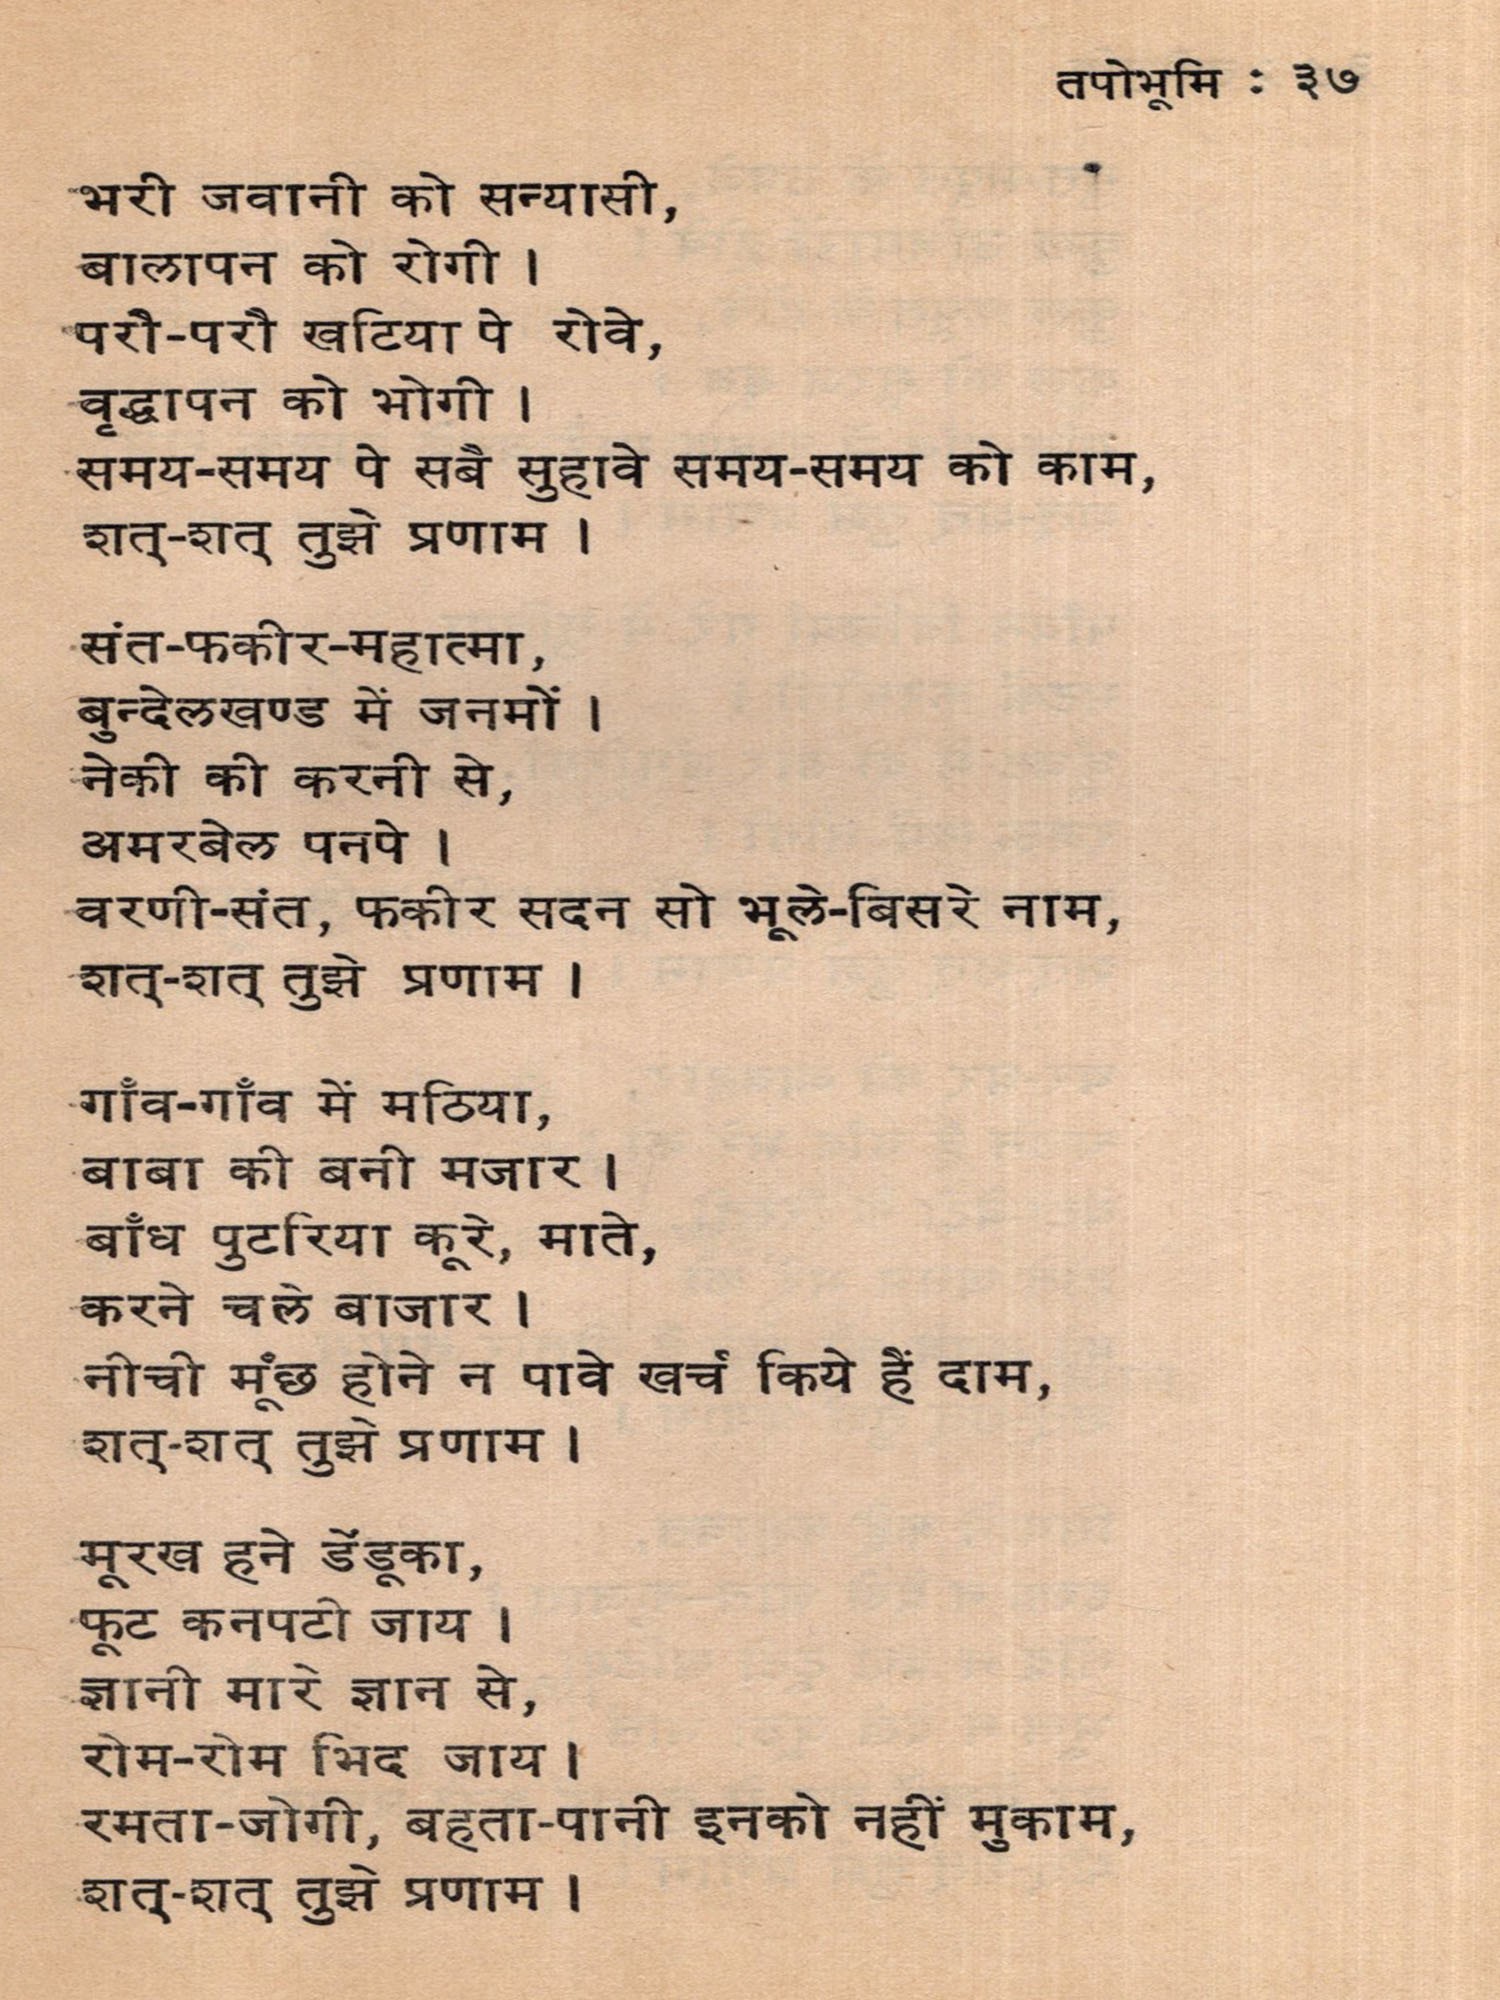 तपोभूमि : ३७
भरी जवानी को सन्यासी,
बालापन को रोगी ।
परौ-परौ खटिया पे रोवे,
वृद्धापन को भोगी ।
समय-समय पे सबै सुहावे समय-समय को काम,
शत्-शत् तुझे प्रणाम ।
संत-फकीर-महात्मा,
बुन्देलखण्ड में जनमों ।
नेकी की करनी से,
अमरबेल पनपे ।
वरणी-संत, फकीर सदन सो भूले-बिसरे नाम,
शत्-शत् तुझे प्रणाम ।
गाँव-गाँव में मठिया,
बाबा की बनी मजार ।
बाँध पुटरिया कूरे, माते,
करने चले बाजार ।
नीची मूंछ होने न पावे खर्च किये हैं दाम,
शत्-शत् तुझे प्रणाम ।
मूरख हने डेंडूका,
फूट कनपटी जाय ।
ज्ञानी मारे ज्ञान से,
रोम-रोम भिद जाय ।
रमता-जोगी, बहता-पानी इनको नहीं मुकाम,
शत्-शत् तुझे प्रणाम ।